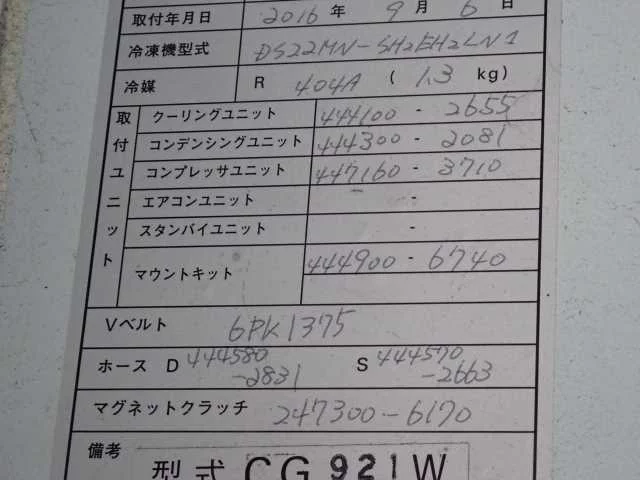 取付年月日 2016 年 9 月 6 日
冷凍機型式 DS22MN-SH2EH2LN1
冷媒 R 404A ( 1.3 kg)
取付ユニット
クーリングユニット 444100 - 2655
コンデンシングユニット 444300 - 2081
コンプレッサユニット 447160 - 3710
エアコンユニット -
スタンバイユニット -
マウントキット 444900 - 6740
Vベルト 6PK1375
ホース D 444580 -2831 S 444570 -2663
マグネットクラッチ 247300-6170
備考
型式 CG921W